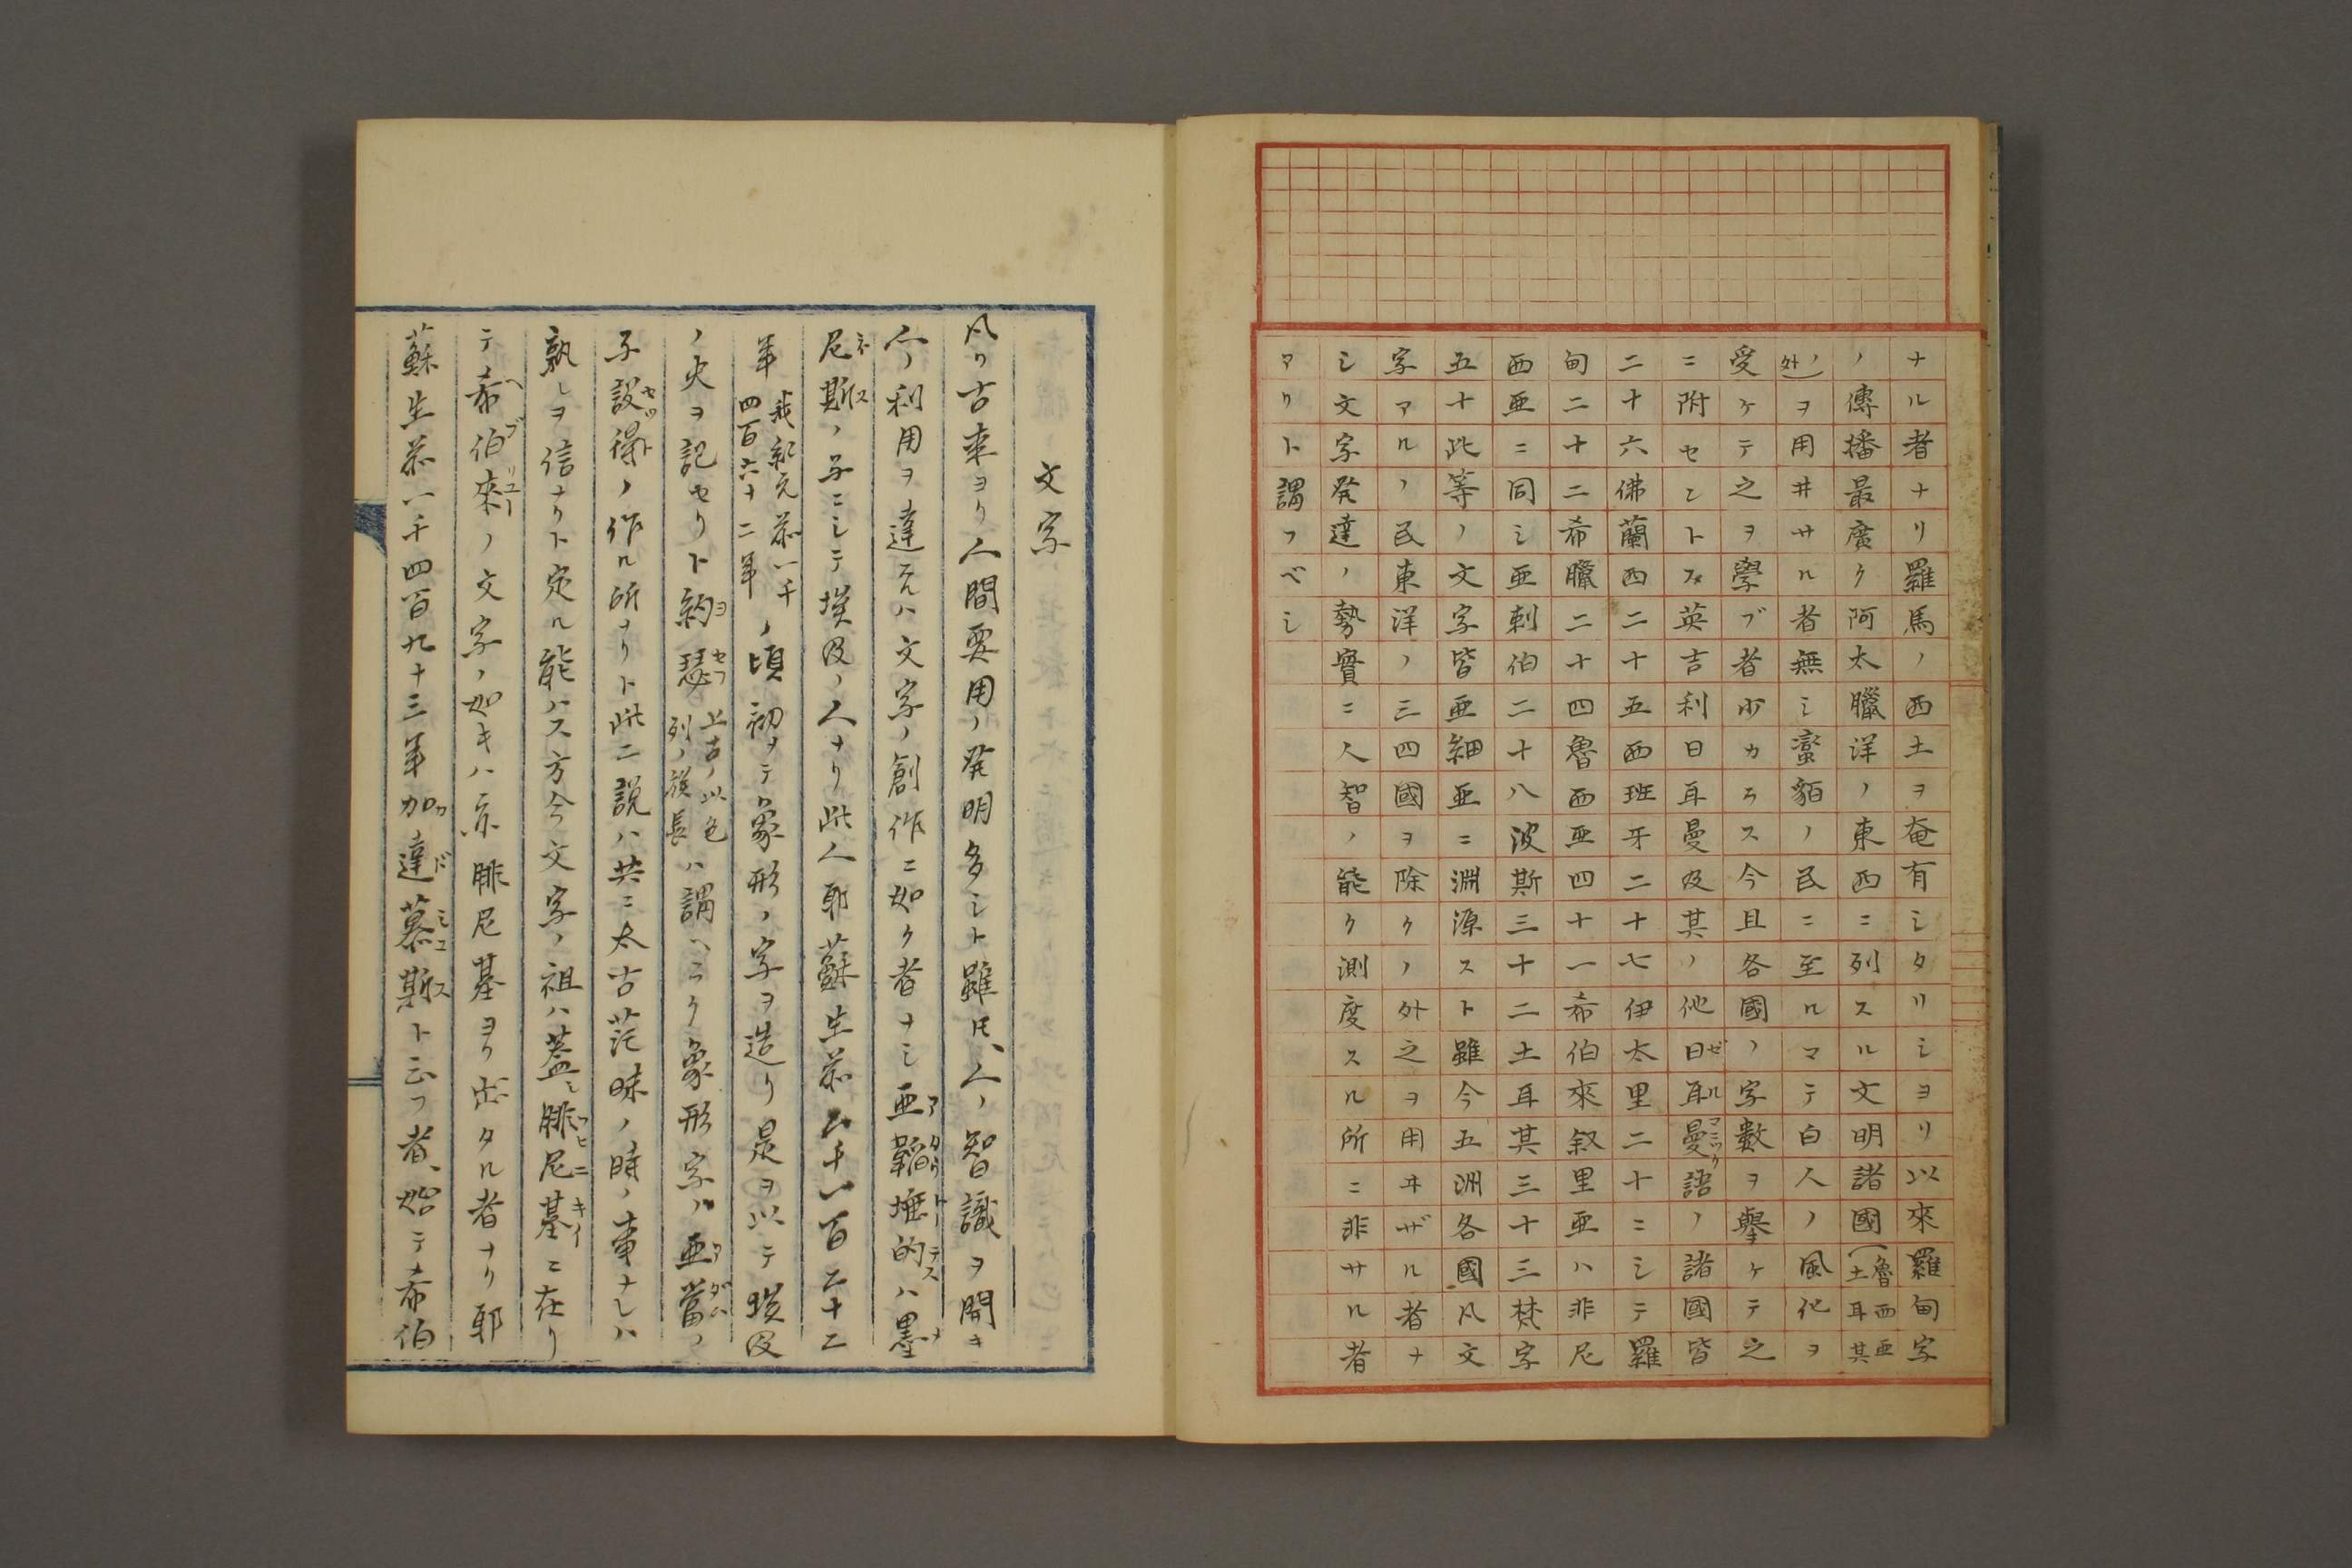 ナル者ナリ羅馬ノ西土ヲ奄有シタリシヨリ以來羅甸字
ノ傳播最廣ク阿太臘洋ノ東西ニ列スル文明諸國(魯西亜土耳其
ノ外)ヲ用井サル者無シ蠻貊ノ民ニ至ルマテ白人ノ風化ヲ
受ケテ之ヲ學ブ者少カラス今且各國ノ字數ヲ擧ケテ之
ニ附セントス英吉利日耳曼及其ノ他日耳曼語ノ諸國皆
ゼルマニック
二十六佛蘭西二十五西班牙二十七伊太里二十ニシテ羅
甸二十二希臘二十四魯西亜四十一希伯來叙里亜ハ非尼
西亜ニ同シ亜剌伯二十八波斯三十二土耳其三十三梵字
五十此等ノ文字皆亜細亜ニ淵源スト雖今五洲各國凡文
字アルノ民東洋ノ三四國ヲ除クノ外之ヲ用ヰザル者ナ
シ文字発達ノ勢實ニ人智ノ能ク測度スル所ニ非サル者
アリト謂フベシ
文字
凡ソ古来ヨリ人間要用ノ発明多シト雖ドモ、人ノ智識ヲ開キ
人ノ利用ヲ達スルハ文字ノ創作ニ如ク者ナシ亜韜堙的ハ墨
尼斯ノ子ニシテ埃及ノ人ナリ此人耶蘇生前二千一百二十二
年
我紀元前一千
四百六十二年
ノ頃初メテ象形ノ字ヲ造リ是ヲ以テ埃及
ノ史ヲ記セリト約瑟
ヨセフ
上古ノ以色
列ノ族長
ハ謂ヘラク象形字ハ亜當ノ
アダム
子設得ノ作ル所ナリト此二説ハ共ニ太古茫昧ノ時ノ事ナレハ
セット
孰レヲ信ナリト定ル能ハス方今文字ノ祖ハ蓋シ腓尼基ニ在リ
フヒニキイ
テ希伯來ノ文字ノ如キハ亦腓尼基ヨリ出タル者ナリ耶
ヘブリユー
蘇生前一千四百九十三年加達慕斯ト云フ者、始テ希伯
カドミユス